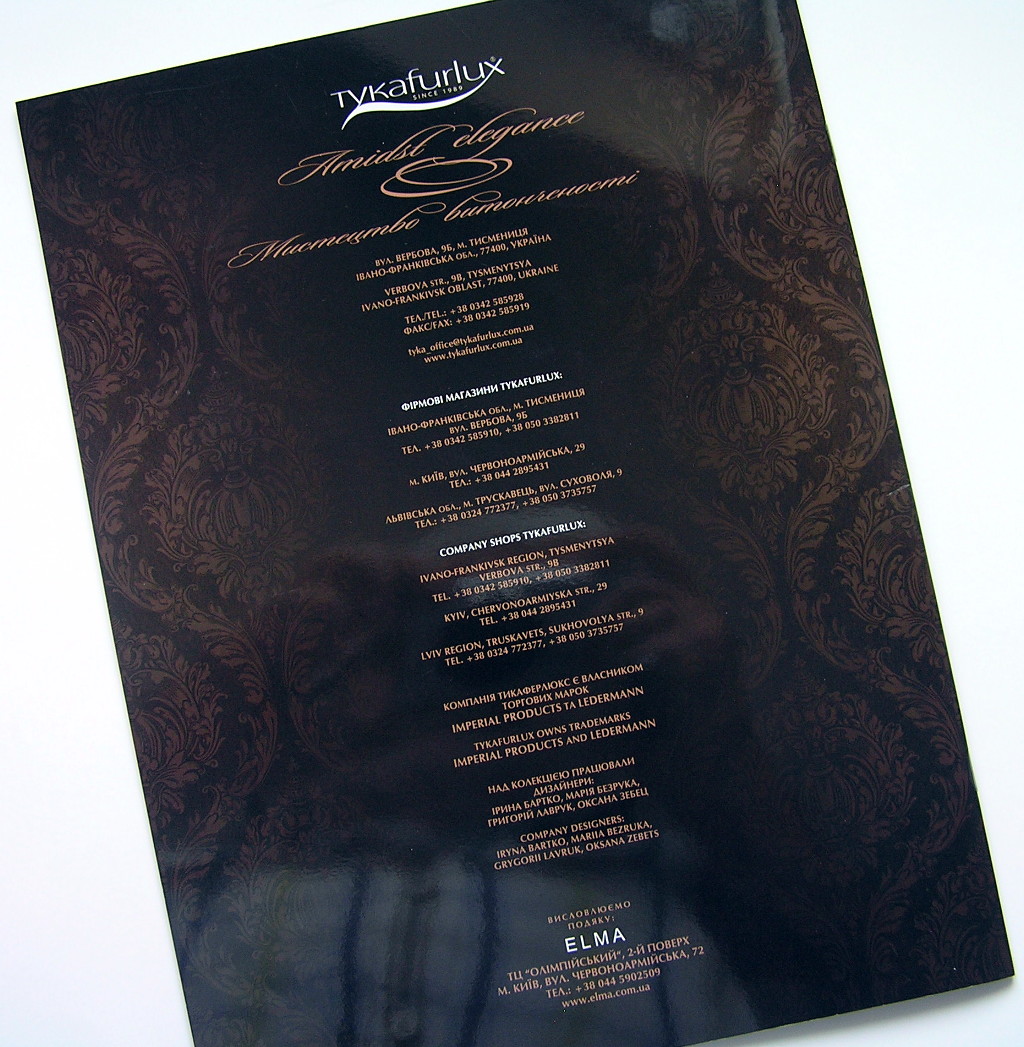 TYKAfurlux
SINCE 1989
Amidst elegance
Мистецтво витонченості
ВУЛ. ВЕРБОВА, 9Б, М. ТИСМЕНИЦЯ
ІВАНО-ФРАНКІВСЬКА ОБЛ., 77400, УКРАЇНА
VERBOVA STR., 9B, TYSMENYTSYA
IVANO-FRANKIVSK OBLAST, 77400, UKRAINE
ТЕЛ./TEL.: +38 0342 585928
ФАКС/FAX: +38 0342 585919
tyka_office@tykafurlux.com.ua
www.tykafurlux.com.ua
ФІРМОВІ МАГАЗИНИ TYKAFURLUX:
ІВАНО-ФРАНКІВСЬКА ОБЛ., М. ТИСМЕНИЦЯ
ВУЛ. ВЕРБОВА, 9Б
ТЕЛ. +38 0342 585910, +38 050 3382811
М. КИЇВ, ВУЛ. ЧЕРВОНОАРМІЙСЬКА, 29
ТЕЛ.: +38 044 2895431
ЛЬВІВСЬКА ОБЛ., М. ТРУСКАВЕЦЬ, ВУЛ. СУХОВОЛЯ, 9
ТЕЛ.: +38 0324 772377, +38 050 3735757
COMPANY SHOPS TYKAFURLUX:
IVANO-FRANKIVSK REGION, TYSMENYTSYA
VERBOVA STR., 9B
TEL. +38 0342 585910, +38 050 3382811
KYIV, CHERVONOARMIYSKA STR., 29
TEL. +38 044 2895431
LVIV REGION, TRUSKAVETS, SUKHOVOLYA STR., 9
TEL. +38 0324 772377, +38 050 3735757
КОМПАНІЯ ТИКАФЕРЛЮКС Є ВЛАСНИКОМ
ТОРГОВИХ МАРОК
IMPERIAL PRODUCTS ТА LEDERMANN
TYKAFURLUX OWNS TRADEMARKS
IMPERIAL PRODUCTS AND LEDERMANN
НАД КОЛЕКЦІЄЮ ПРАЦЮВАЛИ
ДИЗАЙНЕРИ:
ІРИНА БАРТКО, МАРІЯ БЕЗРУКА,
ГРИГОРІЙ ЛАВРУК, ОКСАНА ЗЕБЕЦ
COMPANY DESIGNERS:
IRYNA BARTKO, MARIIA BEZRUKA,
GRYGORII LAVRUK, OKSANA ZEBETS
ВИСЛОВЛЮЄМО
ПОДЯКУ:
ELMA
ТЦ "ОЛІМПІЙСЬКИЙ", 2-Й ПОВЕРХ
М. КИЇВ, ВУЛ. ЧЕРВОНОАРМІЙСЬКА, 72
ТЕЛ.: +38 044 5902509
www.elma.com.ua